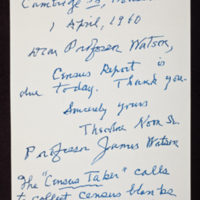 Cambridge
1 April, 1960
Dear Professor Watson,
Census Report is
due today. Thank you.
Sincerely yours
Theodore
Professor James Watson
The "Census Taker" calls
to collect census blanks